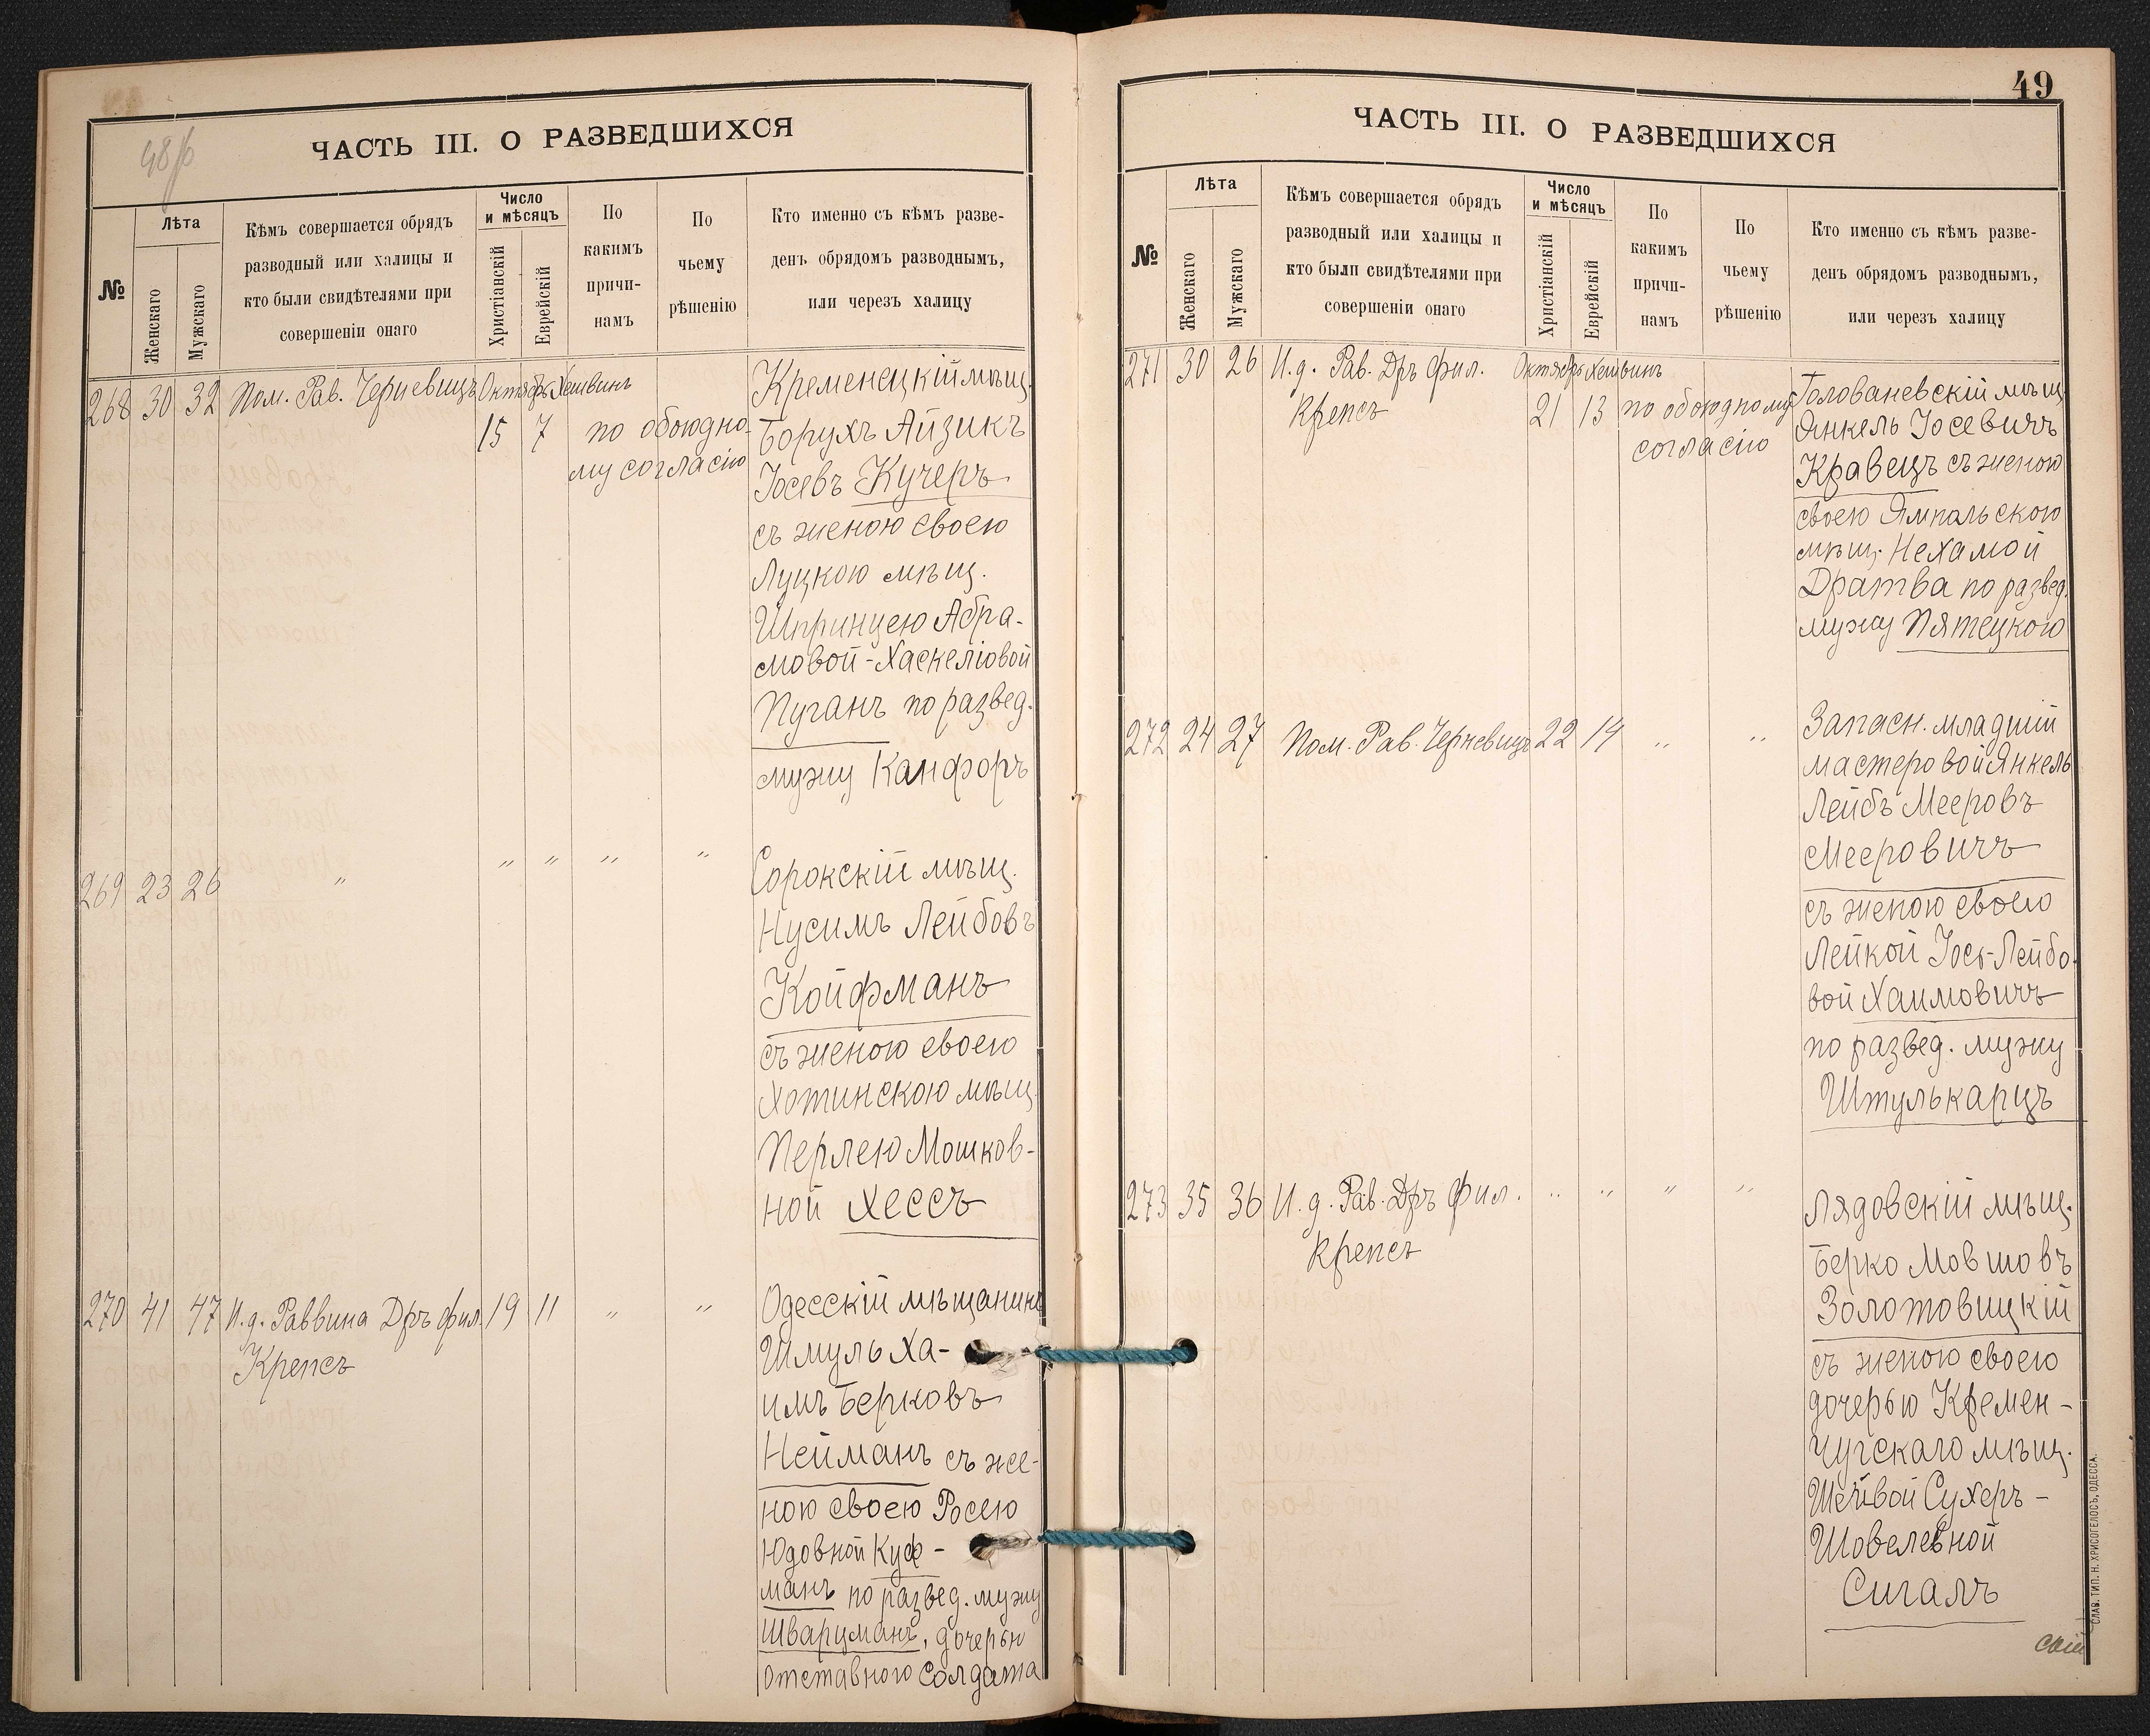 48/б
ЧАСТЬ III. О РАЗВЕДШИХСЯ
№
Лѣта
Женскаго
Мужскаго
Кѣмъ совершается обрядъ
разводный или халицы и
кто были свидѣтелями при
совершеніи онаго
Число
и мѣсяцъ
Христіанскій
Еврейскій
По
какимъ
причи-
намъ
По
чьему
рѣшенію
Кто именно съ кѣмъ разве-
денъ обрядомъ разводнымъ,
или черезъ халицу
268 30 32 Пом. Рав. Черневицъ Октябрь Хешвинъ
15 7 по обоюдно-
му согласію
Кременецкій мѣщ.
Борухъ Айзикъ
Іосевъ Кучеръ
съ женою своею
Луцкою мѣщ.
Шпринцею Абра-
мовой-Хаскеліовой
Пуганъ по развед.
мужу Канфоръ
269 23 26 " " " " "
Сорокскій мѣщ.
Нусимъ Лейбовъ
Койфманъ
съ женою своею
Хотинскою мѣщ.
Перлею Мошков-
ной Хессъ
270 41 47 И.д. Раввина Дръ фил. 19 11 " "
Крепсъ
Одесскій мѣщанинъ
Шмуль Ха-
имъ Берковъ
Нейманъ съ же-
ною своею Росею
Юдовной Куф-
манъ по развед. мужу
Шварцманъ, дочерью
отставного солдата
49
ЧАСТЬ III. О РАЗВЕДШИХСЯ
№
Лѣта
Женскаго
Мужскаго
Кѣмъ совершается обрядъ
разводный или халицы и
кто были свидѣтелями при
совершеніи онаго
Число
и мѣсяцъ
Христіанскій
Еврейскій
По
какимъ
причи-
намъ
По
чьему
рѣшенію
Кто именно съ кѣмъ разве-
денъ обрядомъ разводнымъ,
или черезъ халицу
271 30 26 И.д. Рав. Дръ фил. Октябрь Хешвинъ
Крепсъ 21 13 по обоюдному
согласію
Голованевскій мѣщ.
Янкель Іосевичъ
Кравецъ съ женою
своею Ямпальскою
мѣщ. Нехамой
Дратва по развед.
мужу Пятецкою
272 24 27 Пом. Рав. Черневицъ 22 14 " "
Запасн. младшій
мастеровой Янкель
Лейбъ Мееровъ
Мееровичъ
съ женою своею
Лейкой Іось-Лейбо-
вой Хаимовичъ
по развед. мужу
Штулькарцъ
273 35 36 И.д. Рав. Дръ фил. " " " "
Крепсъ
Лядовскій мѣщ.
Берко Мовшовъ
Золотовицкій
съ женою своею
дочерью Кремен-
чугскаго мѣщ.
Шейвой Сухеръ-
Шовелевной
Сигалъ
СЛАВ. ТИП. Н. ХРИСОГЕЛОСЪ, ОДЕССА.